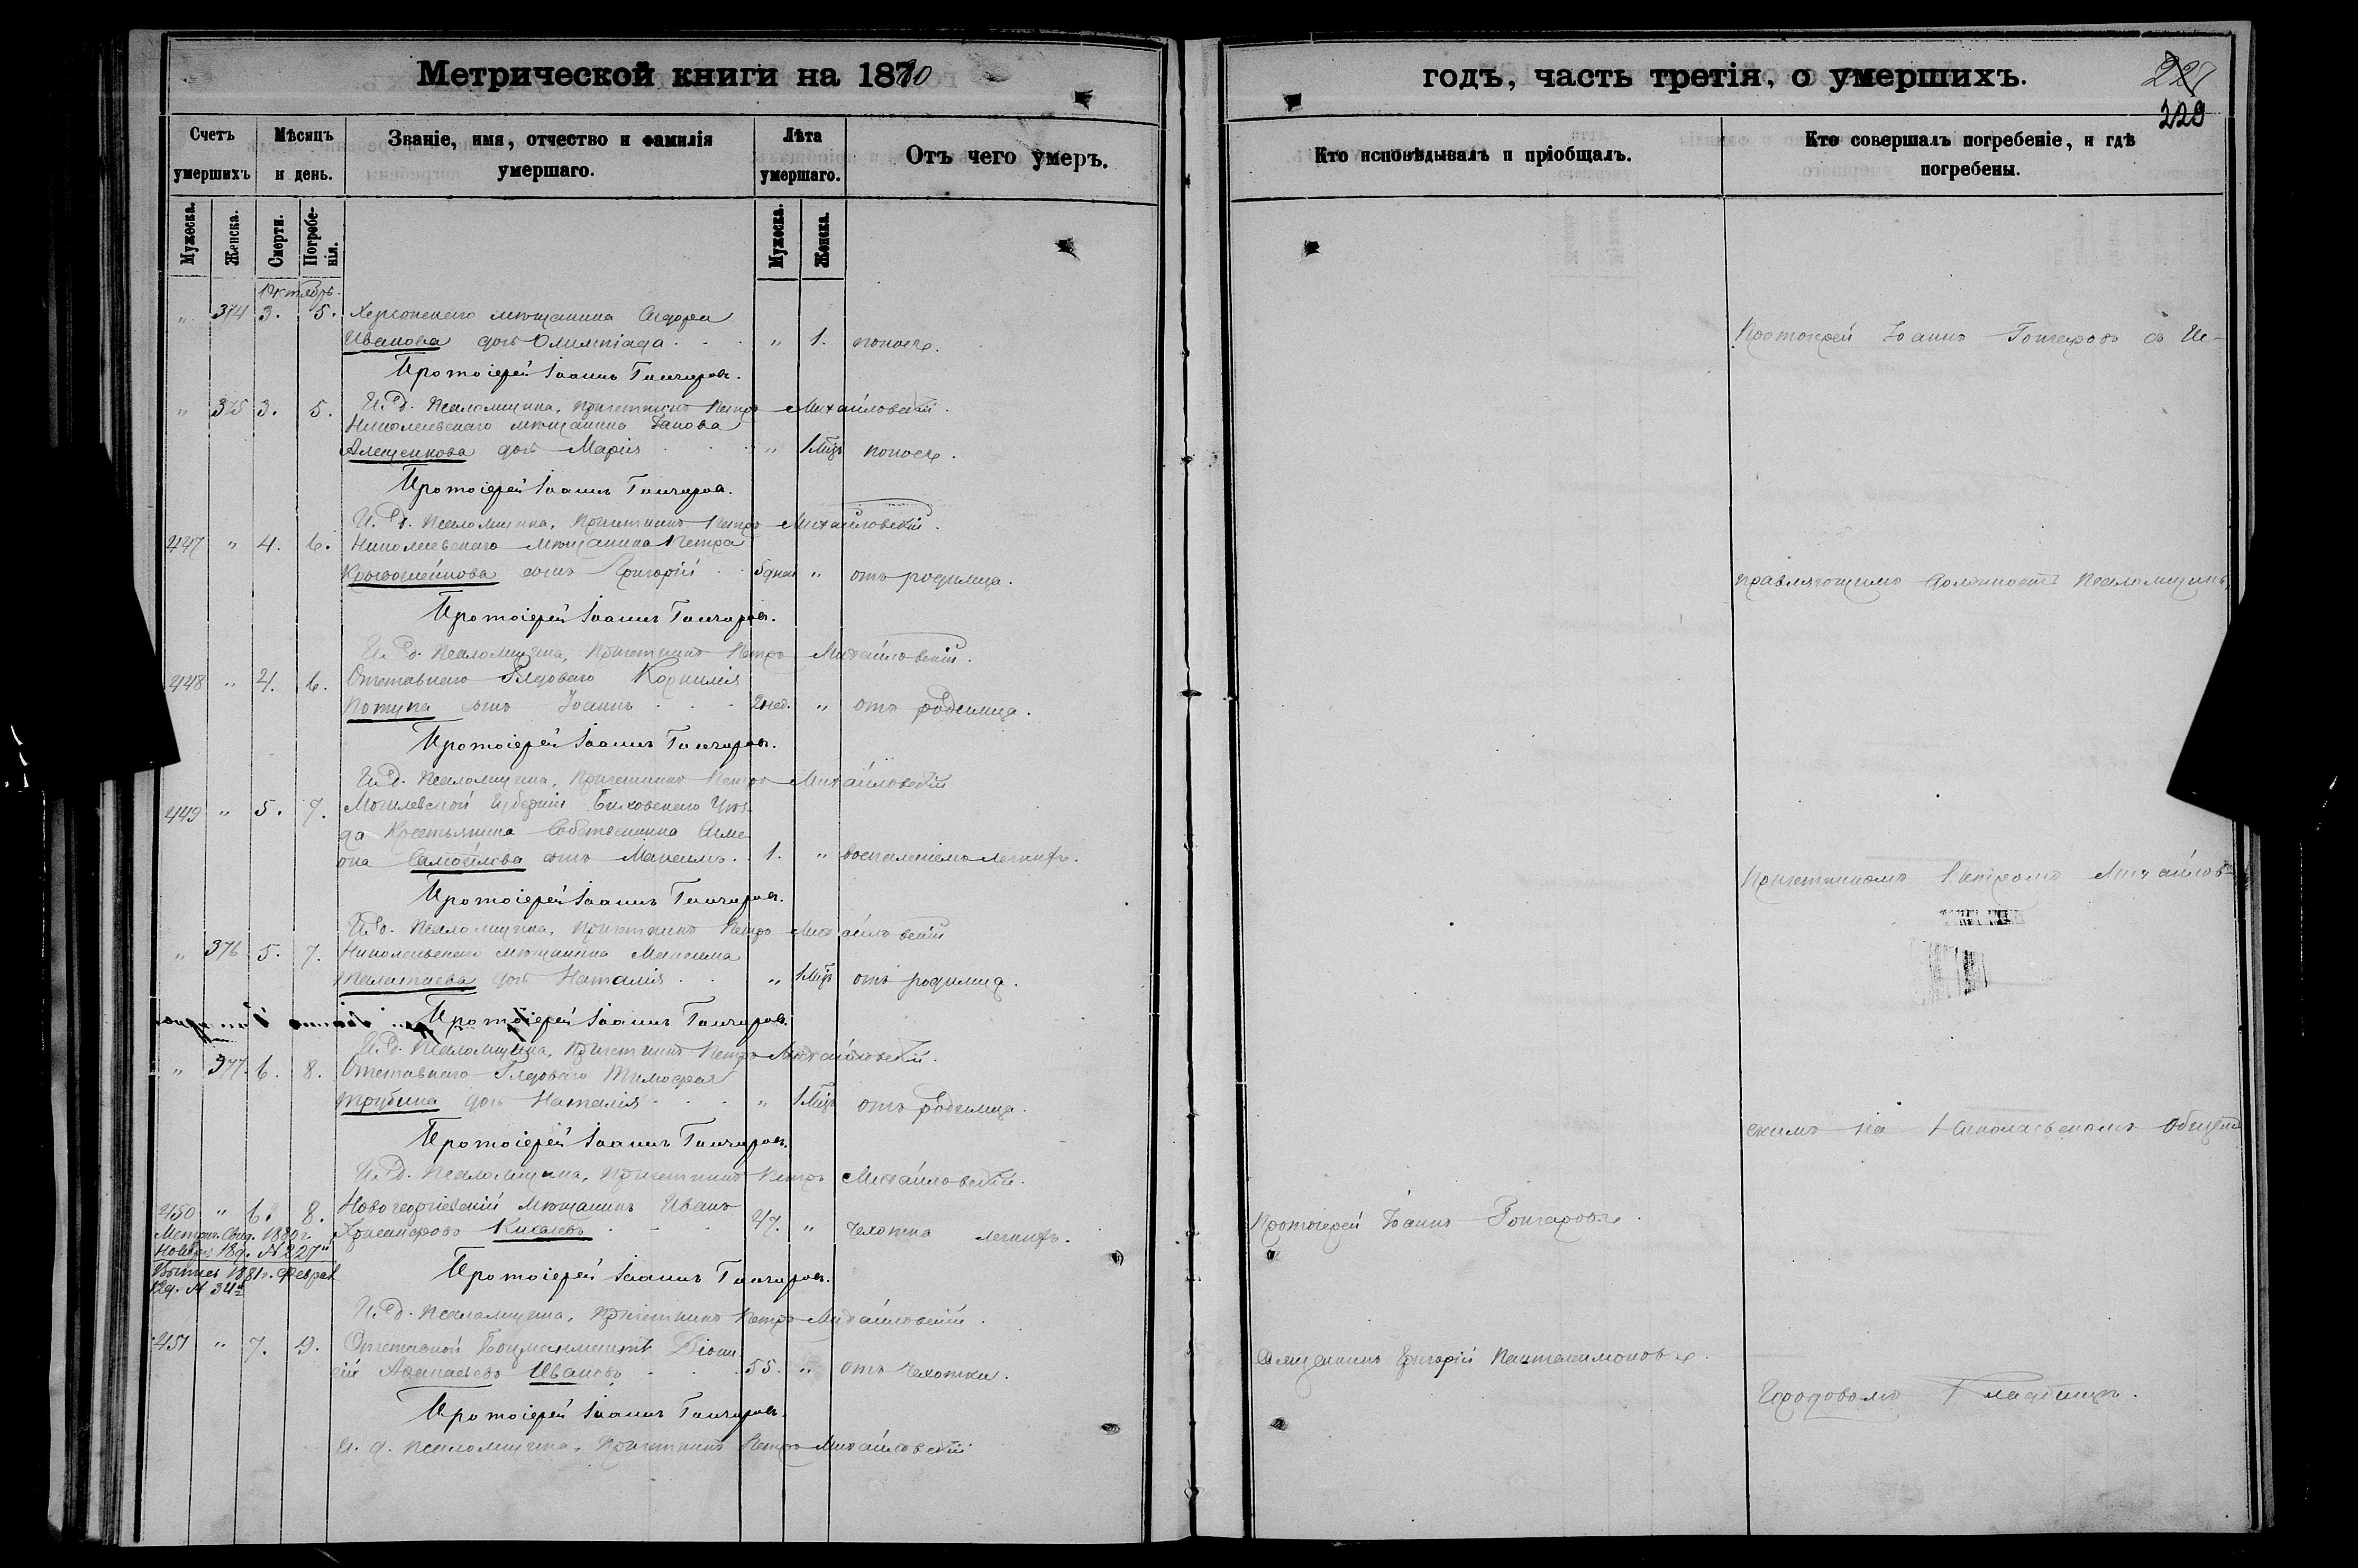 Метрической книги на 1880
годъ, часть третія, о умершихъ.
227
229
Счетъ умершихъ
Мѣсяцъ и день.
Званіе, имя, отчество и фамилія умершаго.
Лѣта умершаго.
Отъ чего умеръ.
Кто исповѣдывалъ и пріобщалъ.
Кто совершалъ погребеніе, и гдѣ погребены.
Мужеска.
Женска.
Смерти.
Погребенія.
Мужеска.
Женска.
Октябрь.
" 374 3. 5. Херсонскаго мѣщанина
Иванова дочь Олимпіада " 1. поносъ.
Протоіерей Іоаннъ Гончаровъ.
" 375 3. 5. И. д. Псаломщика, Причетникъ Петръ Михайловскій.
Николаевскаго мѣщанина Іакова
Алещенкова дочь Марія " 1 мѣц поносъ.
Протоіерей Іоаннъ Гончаровъ.
И. д. Псаломщика, Причетникъ Петръ Михайловскій.
447 " 4. 6. Николаевскаго мѣщанина Петра
Кривошейкова сынъ Григорій 5 дней " отъ родимца.
Протоіерей Іоаннъ Гончаровъ.
И. д. Псаломщика, Причетникъ Петръ Михайловскій.
448 " 4. 6. Отставнаго Рядоваго Корнилія
Потупа сынъ Іоаннъ 2 нед. " отъ родимца.
Протоіерей Іоаннъ Гончаровъ.
И. д. Псаломщика, Причетникъ Петръ Михайловскій
449 " 5. 7. Могилевской Губерніи Быховскаго Уѣз-
да Крестьянина Собственника Симе-
она Самойлова сынъ Максимъ. 1. " воспаленіемъ легкихъ.
Протоіерей Іоаннъ Гончаровъ.
И. д. Псаломщика, Причетникъ Петръ Михайловскій
" 376 5. 7. Николаевскаго мѣщанина Максима
дочь Наталія " 1 мѣц отъ родимца.
Протоіерей Іоаннъ Гончаровъ.
И. д. Псаломщика, Причетникъ Петръ Михайловскій.
" 377. 6. 8. Отставнаго Рядоваго Тимофея
Трубина дочь Наталія " 1 мѣц отъ родимца.
Протоіерей Іоаннъ Гончаровъ.
И. д. Псаломщика, Причетникъ Петръ Михайловскій.
450 " 6. 8. Новогеоргіевскій Мѣщанинъ Иванъ
Киселевъ 47. " чахотка легкихъ.
Метрич. Свид. 1880 г.
Ноября 18 д. № 227
1881 г. Феврал
12 д. № 34
Протоіерей Іоаннъ Гончаровъ.
И. д. Псаломщика, Причетникъ Петръ Михайловскій.
451 " 7. 9. Отставной Боцманматъ Діони-
сій Аѳанасьевъ Ивановъ 55. " отъ чахотки.
Протоіерей Іоаннъ Гончаровъ.
И. д. Псаломщика, Причетникъ Петръ Михайловскій
Протоіерей Іоаннъ Гончаровъ.
Священникъ Григорій Пантелимоновъ.
Протоіерей Іоаннъ Гончаровъ съ Ис-
правляющимъ должность Псаломщика,
Причетникомъ Петромъ Михайлов-
скимъ на Николаевскомъ Общемъ
Городовомъ Кладбищѣ.